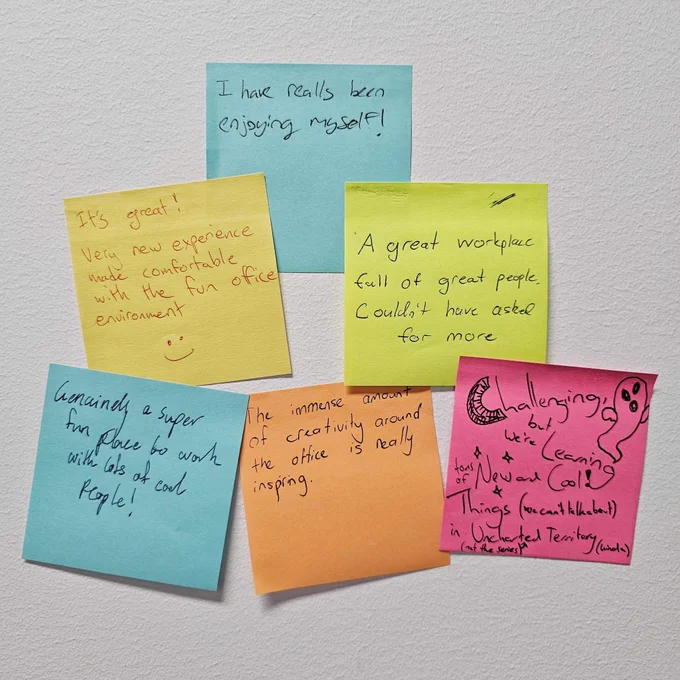 I have really been
enjoying myself!
It's great!
Very new experience
made comfortable
with the fun office
environment
A great workplace
full of great people.
Couldn't have asked
for more
Genuinely a super
fun place to work
with lots of cool
People!
The immense amount
of creativity around
the office is really
inspring.
Challenging,
but
we're Learning
tons of New and Cool!
Things (we can't talk about)
in Uncharted Territory (kinda)
(not the series)